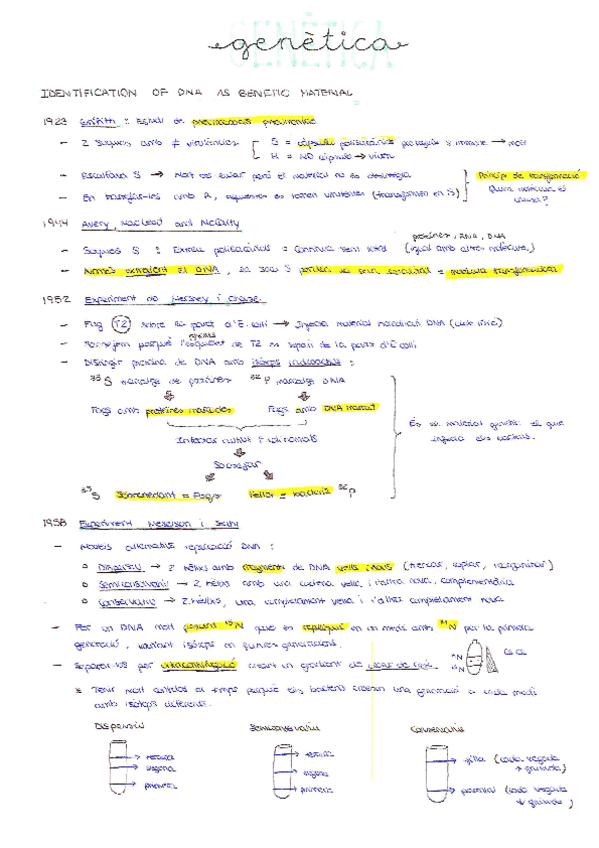 genètica
IDENTIFICATION OF DNA AS GENETIC MATERIAL
1923 Griffith : Estudi de pneumonie
- 2 Soques amb ≠ virulències S = càpsula polisacàrids protegeix → mort
R = NO càpsula → viuen
- Escalfada S → Mort de calor però el material no es destrueix
- En barrejar-les amb R, aquestes es tornen virulentes (transformen en S)
Principi de transformació
Quina molècula és
la causa?
1944 Avery, MacLeod and McCarty
proteïnes, RNA, DNA
- Soques S : Extreu polisacàrids = Continua sent letal (igual amb altres molècules)
- Només extraient el DNA, la soca S perdia la seva = molècula transformadora
1952 Experiment de Hershey i Chase.
- Fag T2 sobre la paret d'E. coli → Injecta material DNA (cicle lític)
- perquè l'esquelet de T2 se separi de la paret d'E. coli
- Distingir proteïna de DNA amb isòtops radioactius :
35S marcatge de proteïnes 32P marcatge DNA
Fags amb proteïnes marcades Fags amb DNA marcat
Infectar cultiu E. coli normals
Sobrenedant = Fags Pellet = bacteris 32P
35S
És el material genètic el que
injecta els
1958 Experiment Meselson i Stahl
- Models alternatius replicació DNA :
o Dispersiu → 2 hèlixs amb fragments de DNA vells i nous (trencar, copiar, reorganitzar)
o Semiconservatiu → 2 hèlixs amb una cadena vella i l'altra nova, complementària
o Conservatiu → 2 hèlixs, una completament vella i l'altra completament nova
- Per un DNA molt 15N que es repliqui en un medi amb 14N per la primera
generació, isòtops en futures generacions.
- Separar-los per ultracentrifugació creant un gradient de clorur de cesi.
14N
15N
CsCl
* Tenir molt el temps perquè els bacteris creixin una generació a cada medi
amb isòtops diferents.
Dispersiu
Semiconservatiu
Conservatiu
→ tercera
→ segona
→ primera
→ tercera
→ segona
→ primera
→ filla (cada vegada
+ gruixuda)
→ parental (cada vegada
gruixuda)